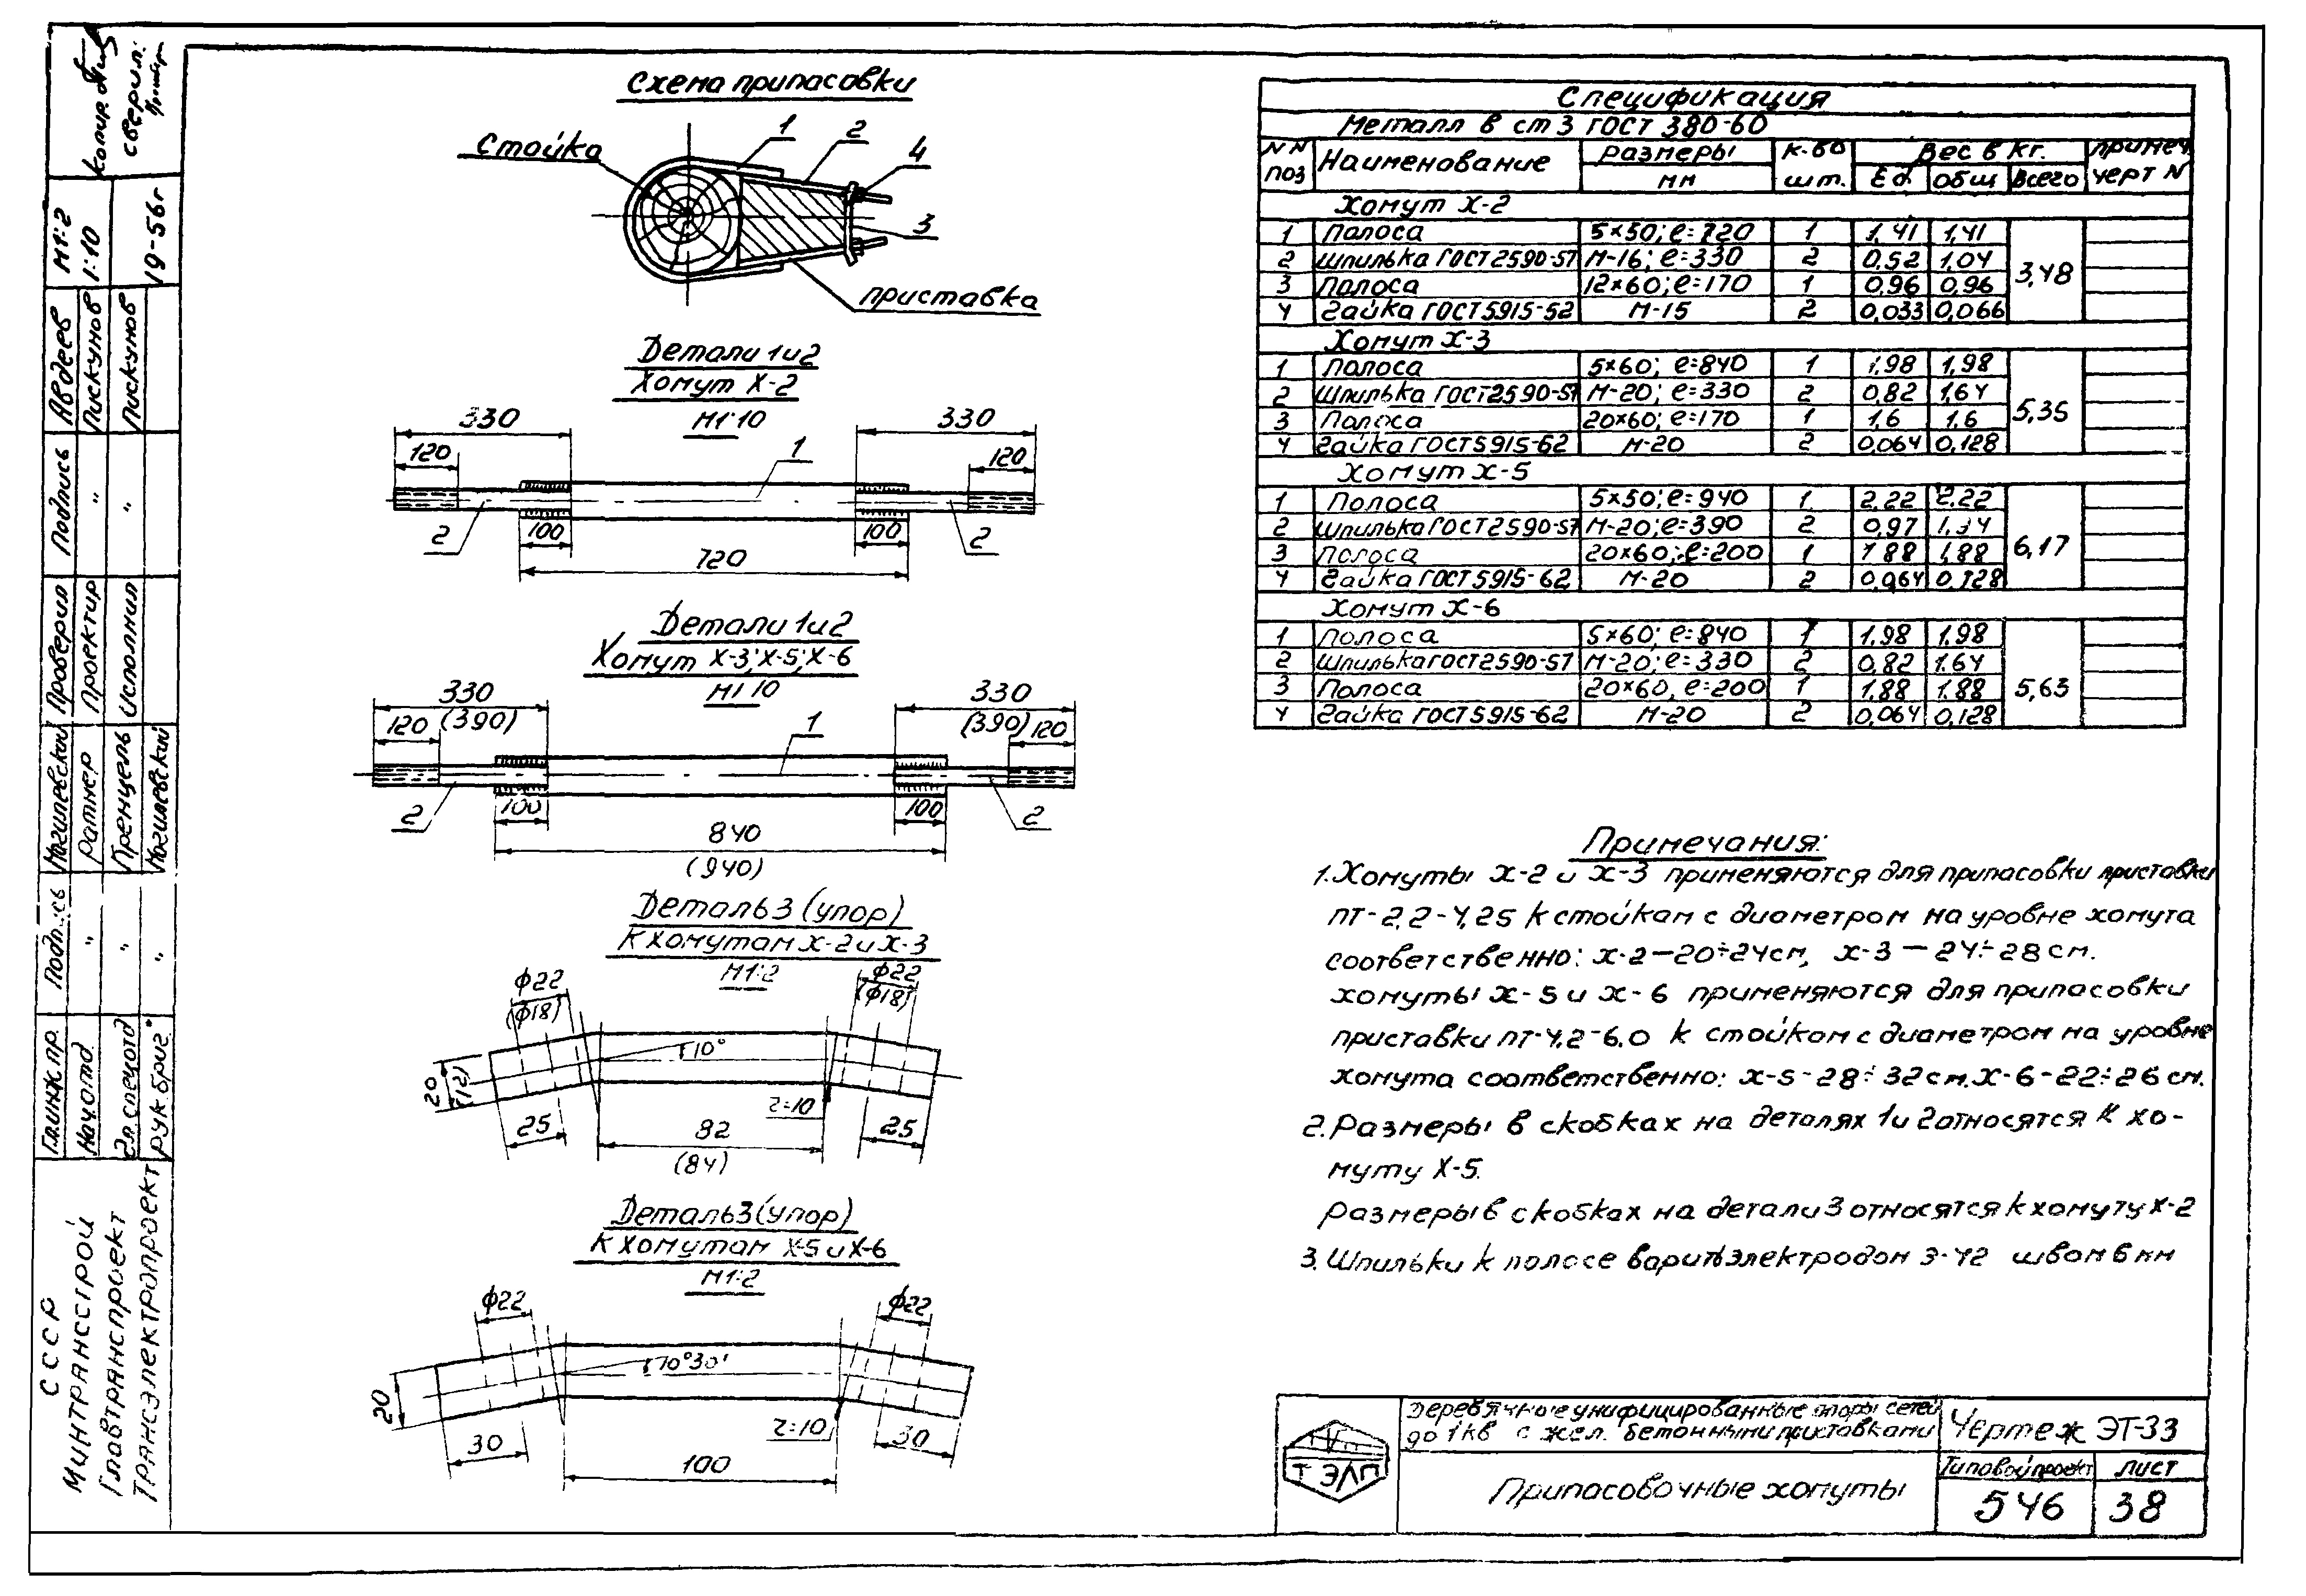 Схема припасовки
Стойка
1
2
4
3
приставка
Детали 1 и 2
Хомут Х-2
М1:10
330
330
120
120
1
2
100
100
2
720
Детали 1 и 2
Хомут Х-3; Х-5; Х-6
М1:10
330
(390)
330
(390)
120
120
1
2
100
100
2
840
(940)
Деталь 3 (упор)
К хомутам Х-2 и Х-3
М1:2
ф22
(ф18)
ф22
(ф18)
10°
20
(12)
25
r=10
25
82
(84)
Деталь 3 (упор)
К хомутам Х-5 и Х-6
М1:2
ф22
ф22
10°30'
20
30
r=10
30
100
Спецификация
Металл в ст 3 ГОСТ 380-60
NN поз Наименование Размеры мм К-во шт. Вес в кг. Ед. общ Всего Примеч. черт N
Хомут Х-2
1 Полоса 5×50; ℓ=720 1 1,41 1,41
2 Шпилька ГОСТ 2590-57 М-16; ℓ=330 2 0,52 1,04
3 Полоса 12×60; ℓ=170 1 0,96 0,96
4 Гайка ГОСТ 5915-52 М-15 2 0,033 0,066
3,48
Хомут Х-3
1 Полоса 5×60; ℓ=840 1 1,98 1,98
2 Шпилька ГОСТ 2590-57 М-20; ℓ=330 2 0,82 1,64
3 Полоса 20×60; ℓ=170 1 1,6 1,6
4 Гайка ГОСТ 5915-62 М-20 2 0,064 0,128
5,35
Хомут Х-5
1 Полоса 5×50; ℓ=940 1 2,22 2,22
2 Шпилька ГОСТ 2590-57 М-20; ℓ=390 2 0,97
3 Полоса 20×60; ℓ=200 1 1,88 1,88
4 Гайка ГОСТ 5915-62 М-20 2 0,064 0,128
6,17
Хомут Х-6
1 Полоса 5×60; ℓ=840 1 1,98 1,98
2 Шпилька ГОСТ 2590-57 М-20; ℓ=330 2 0,82 1,64
3 Полоса 20×60, ℓ=200 1 1,88 1,88
4 Гайка ГОСТ 5915-62 М-20 2 0,064 0,128
5,63
Примечания:
1. Хомуты Х-2 и Х-3 применяются для припасовки приставки
ПТ-2,2-4,25 к стойкам с диаметром на уровне хомута
соответственно: Х-2-20÷24см, Х-3-24÷28см.
Хомуты Х-5 и Х-6 применяются для припасовки
приставки ПТ-4,2-6.0 к стойком с диаметром на уровне
хомута соответственно: Х-5-28÷32см. Х-6-22÷26см.
2. Размеры в скобках на деталях 1 и 2 относятся к хо-
муту Х-5.
Размеры в скобках на детали 3 относятся к хомуту Х-2
3. Шпильки к полосе варить электродом Э-42 швом 6 мм
ТЭЛП
Деревянные унифицированные опоры сетей
до 1 кв с жел. бетонными приставками
Припасовочные хомуты
Чертеж ЭТ-33
Типовой проект лист
546 38
копир.
сверил:
М1:2
1:10
19-56г
Авдеев
Пискунов
Пискунов
Подпись
"
"
Проверил
Проектир
Исполнил
Могилевский
Ратнер
Пренцель
Могилевский
Подпись
"
"
"
Гл.инж.пр.
Нач.отд.
Гл.спецотд
рук.бриг.
СССР
Минтрансстрой
Главтранспроект
Трансэлектропроект